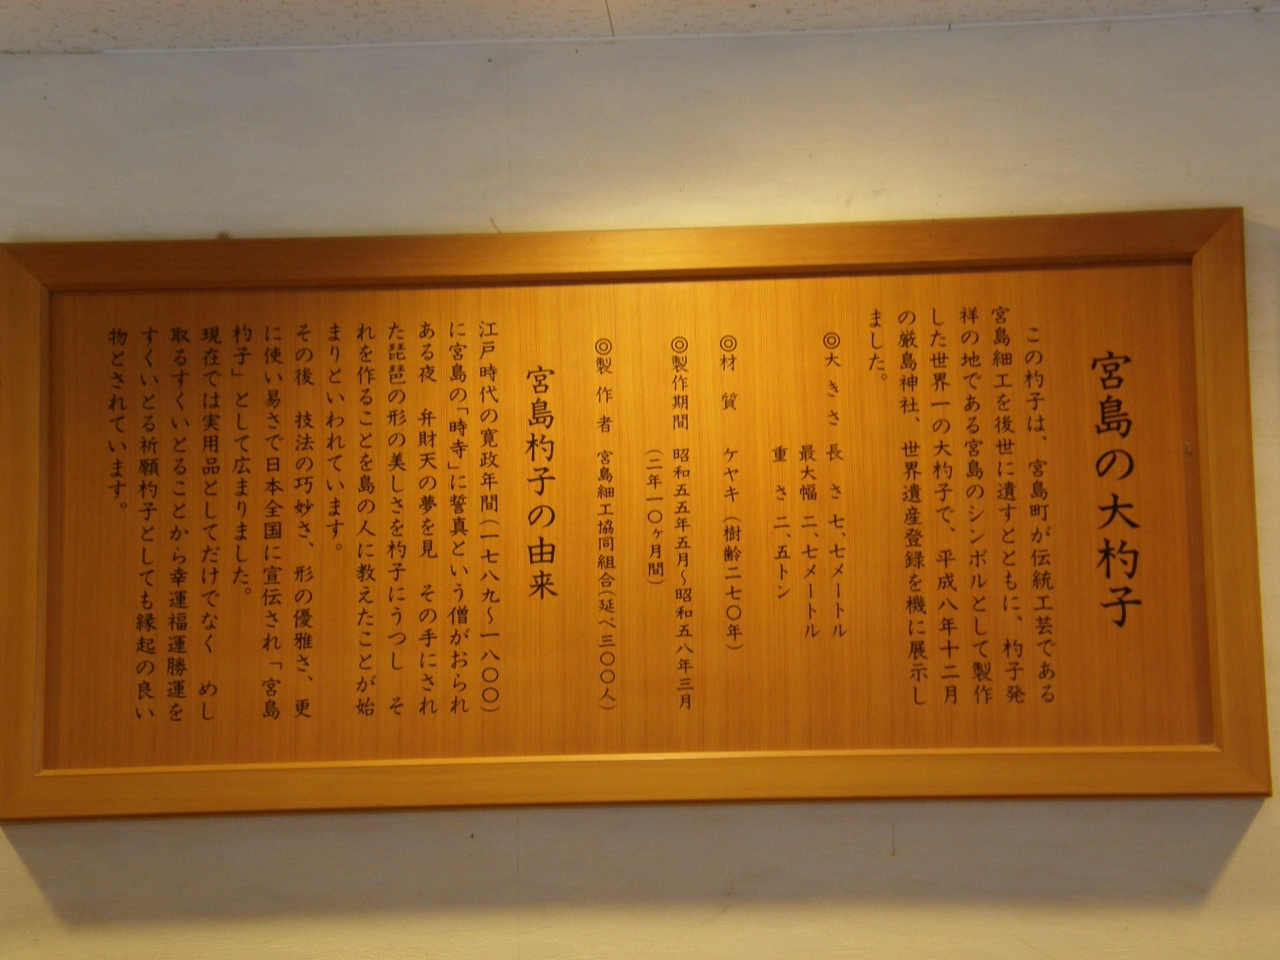 宮島の大杓子
この杓子は、宮島町が伝統工芸である
宮島細工を後世に遺すとともに、杓子発
祥の地である宮島のシンボルとして製作
した世界一の大杓子で、平成八年十二月
の厳島神社、世界遺産登録を機に展示し
ました。
◎大きさ 長さ 七、七メートル
最大幅 二、七メートル
重さ 二、五トン
◎材質 ケヤキ(樹齢二七〇年)
◎製作期間 昭和五五年五月〜昭和五八年三月
(二年一〇ヶ月間)
◎製作者 宮島細工協同組合(延べ三〇〇人)
宮島杓子の由来
江戸時代の寛政年間(一七八九〜一八〇〇)
に宮島の「時寺」に誓真という僧がおられ
ある夜 弁財天の夢を見 その手にされ
た琵琶の形の美しさを杓子にうつし そ
れを作ることを島の人に教えたことが始
まりといわれています。
その後 技法の巧妙さ、形の優雅さ、更
に使い易さで日本全国に宣伝され「宮島
杓子」として広まりました。
現在では実用品としてだけでなく めし
取るすくいとることから幸運福運勝運を
すくいとる祈願杓子としても縁起の良い
物とされています。